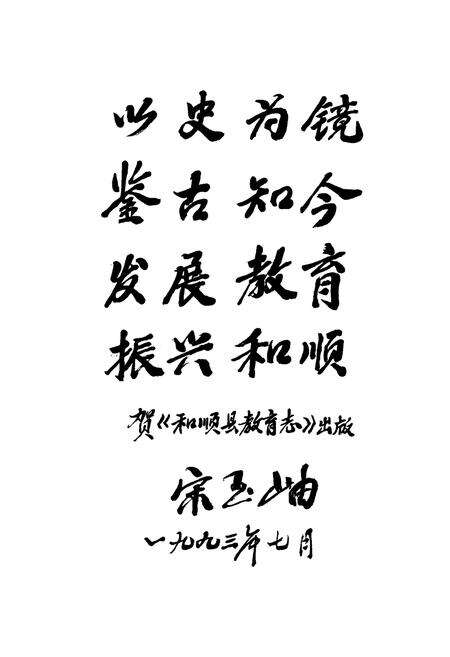 以史为镜
鉴古知今
发展教育
振兴和顺
贺《和顺县教育志》出版
宋玉岫
一九九三年七月